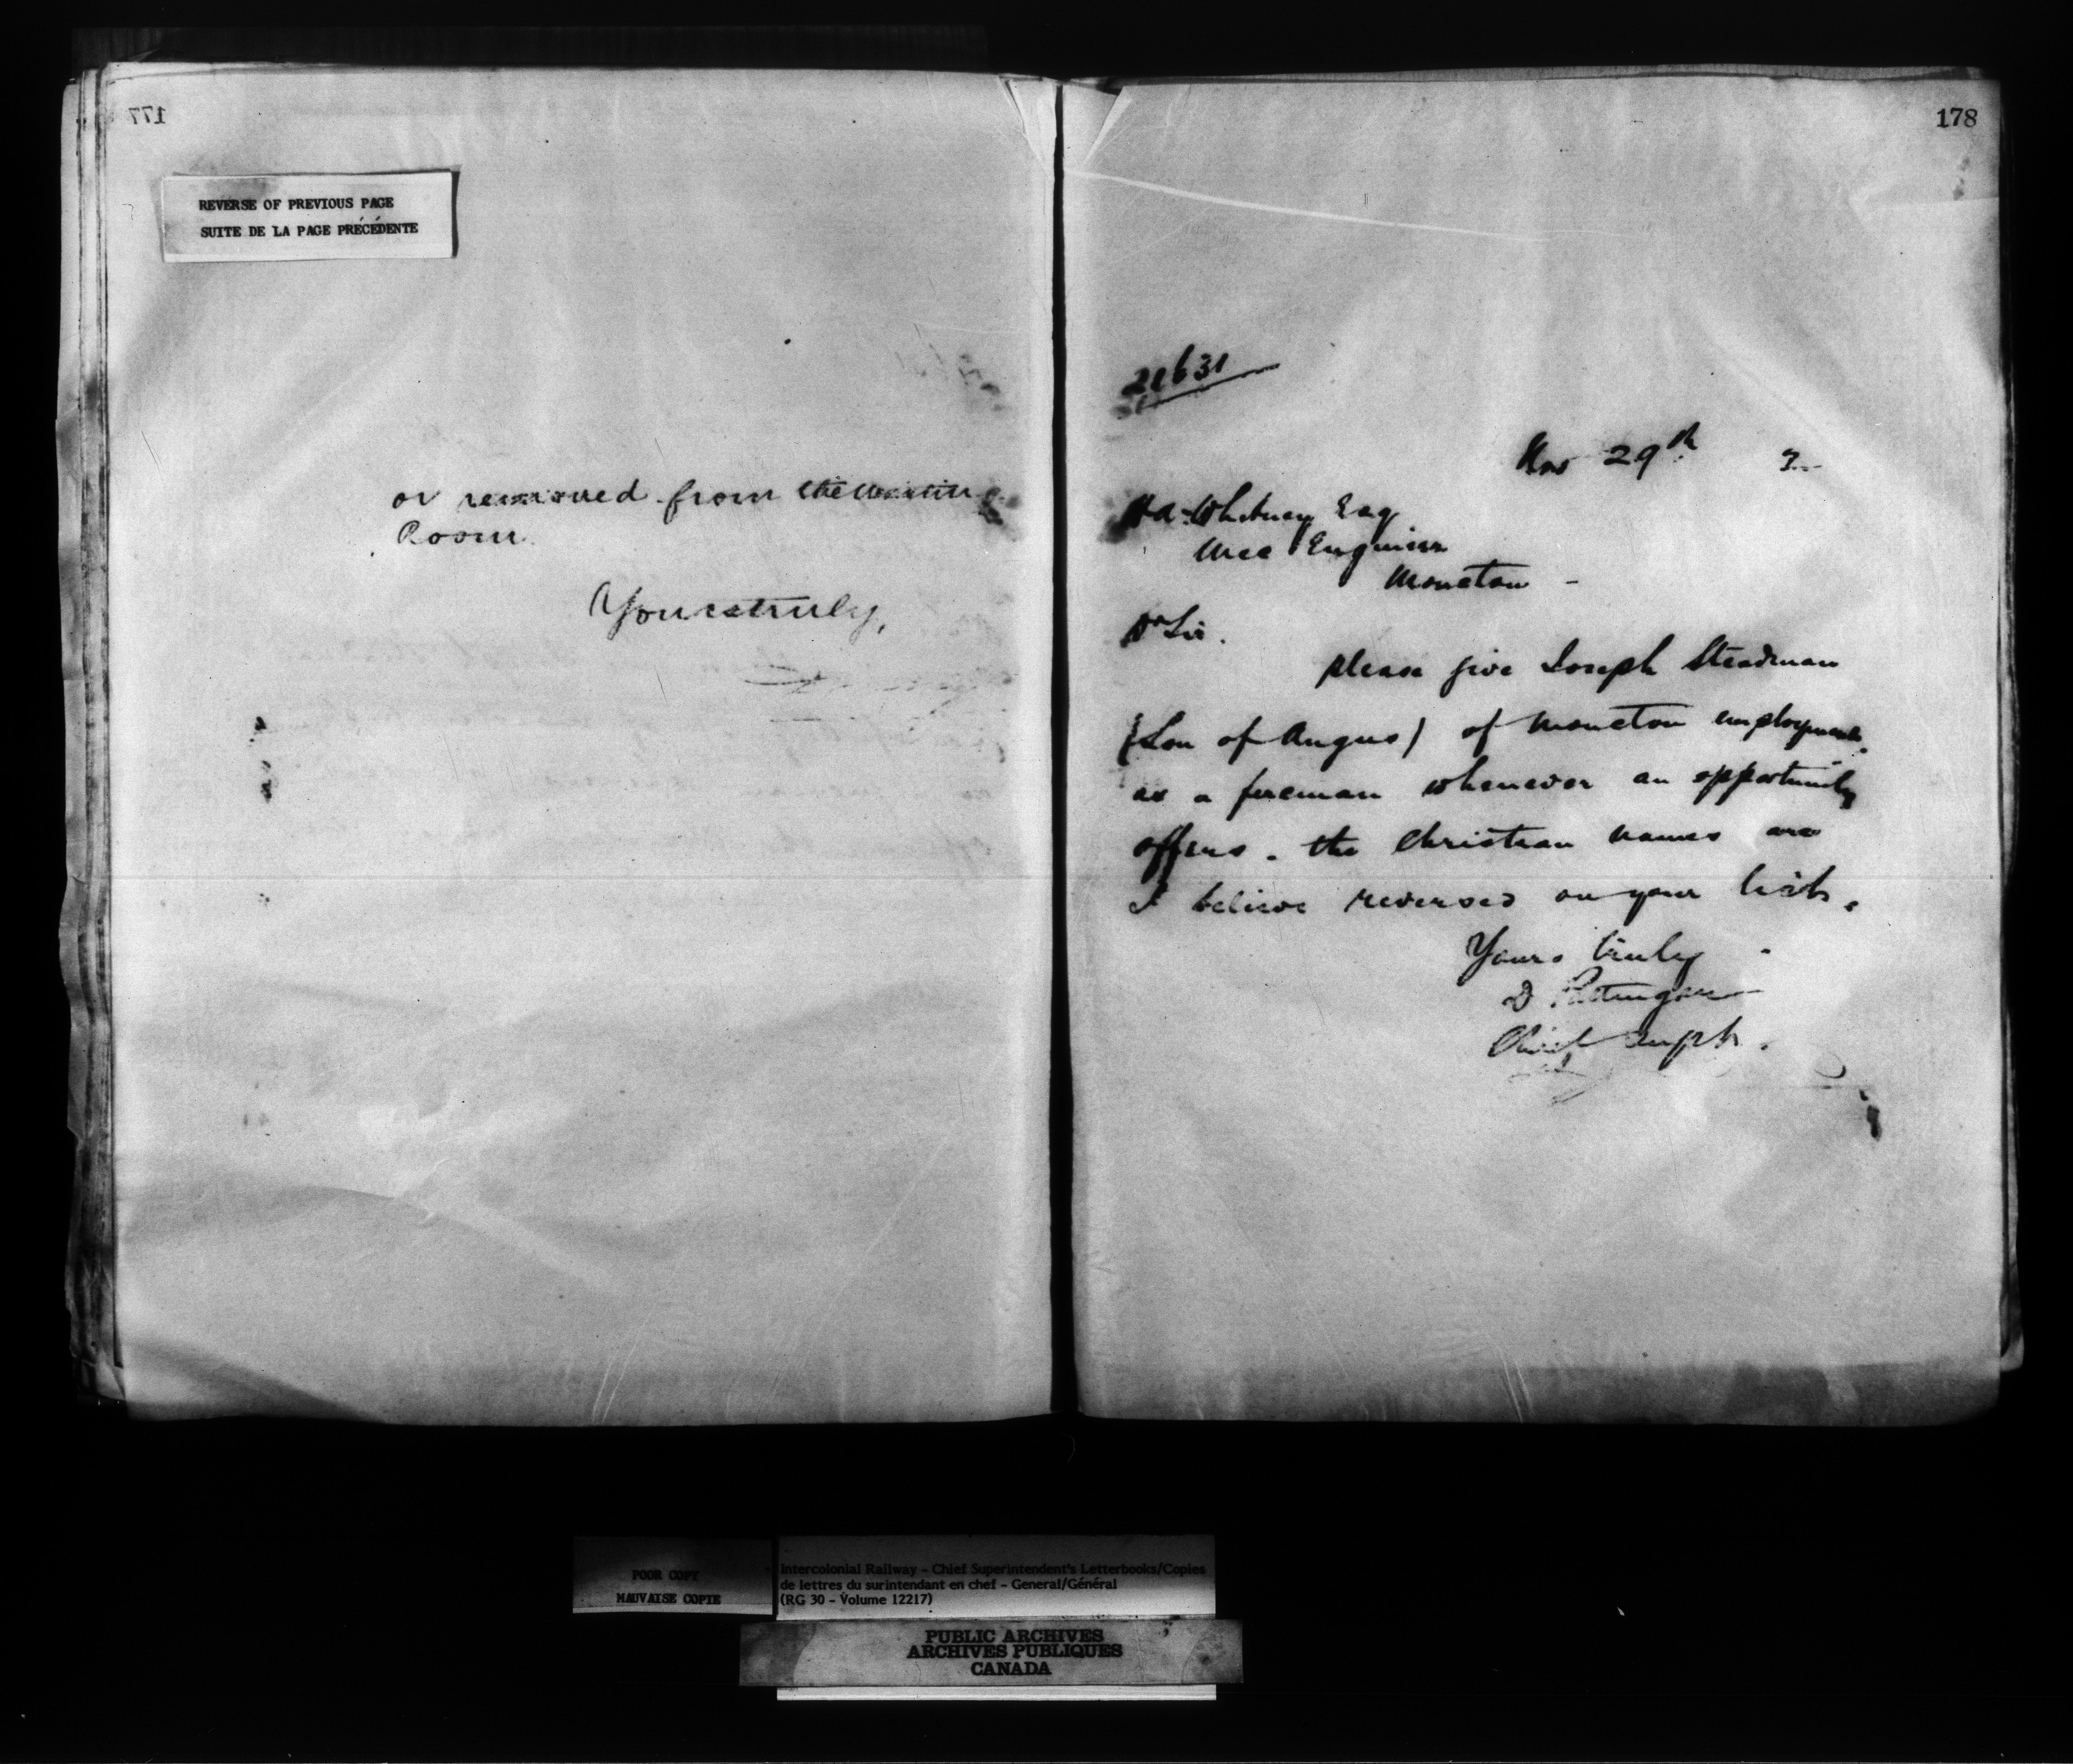 177
REVERSE OF PREVIOUS PAGE
SUITE DE LA PAGE PRÉCÉDENTE
or removed from the waiting
Room.
Yours truly,
178
21631
Nov 29th 7
H A Whitney Esq
Mec Engineer
Moncton -
Dr Sir.
Please give Joseph Steadman
(Son of Angus) of Moncton employment
as a foreman whenever an opportunity
offers. the Christian names are
I believe reversed on your list.
Yours truly
D Pottinger
Chief Supt.
POOR COPY
MAUVAISE COPIE
Intercolonial Railway - Chief Superintendent's Letterbooks/Copies
de lettres du surintendant en chef - General/Général
(RG 30 - Volume 12217)
PUBLIC ARCHIVES
ARCHIVES PUBLIQUES
CANADA